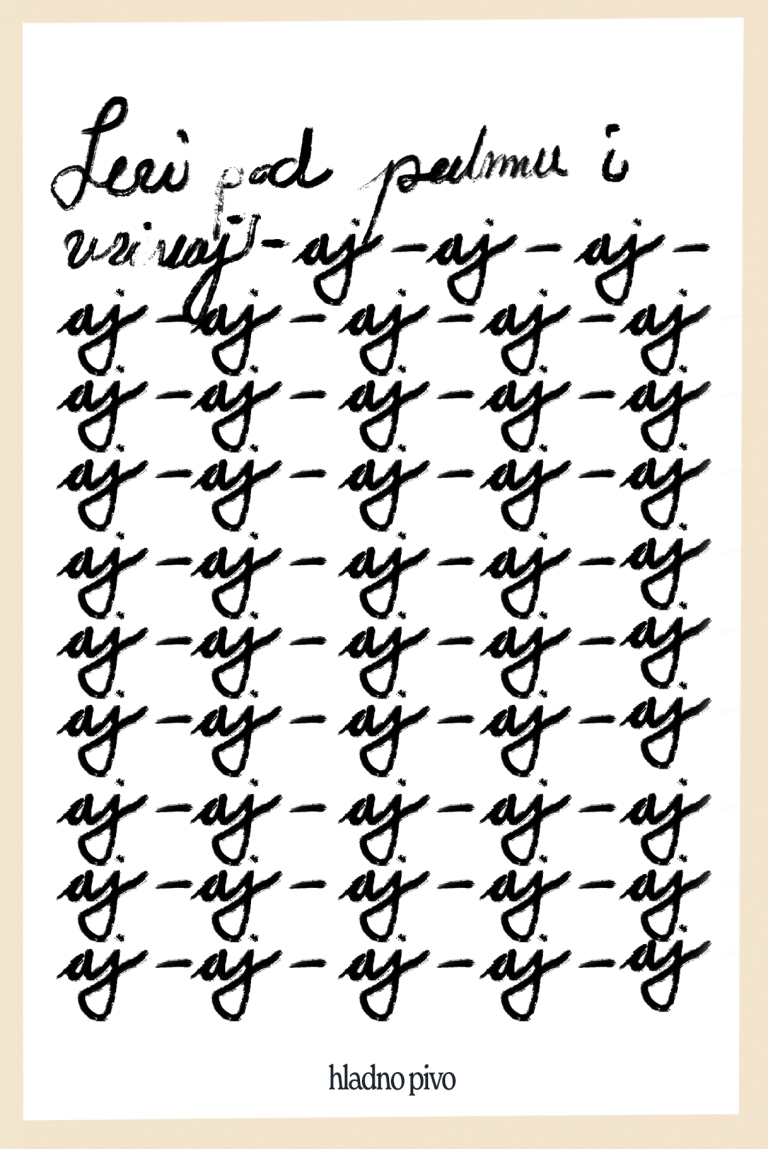 Leži pod palmu i
uživaj - aj - aj - aj -
aj - aj - aj - aj - aj
aj - aj - aj - aj - aj
aj - aj - aj - aj - aj
aj - aj - aj - aj - aj
aj - aj - aj - aj - aj
aj - aj - aj - aj - aj
aj - aj - aj - aj - aj
aj - aj - aj - aj - aj
aj - aj - aj - aj - aj
hladno pivo